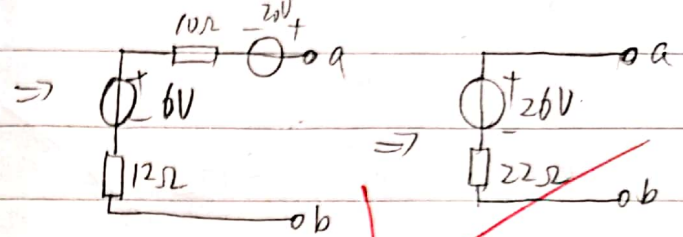 10Ω - 20V +
a
⇒ + 6V -
12Ω
b
⇒
a
+ 26V -
22Ω
b